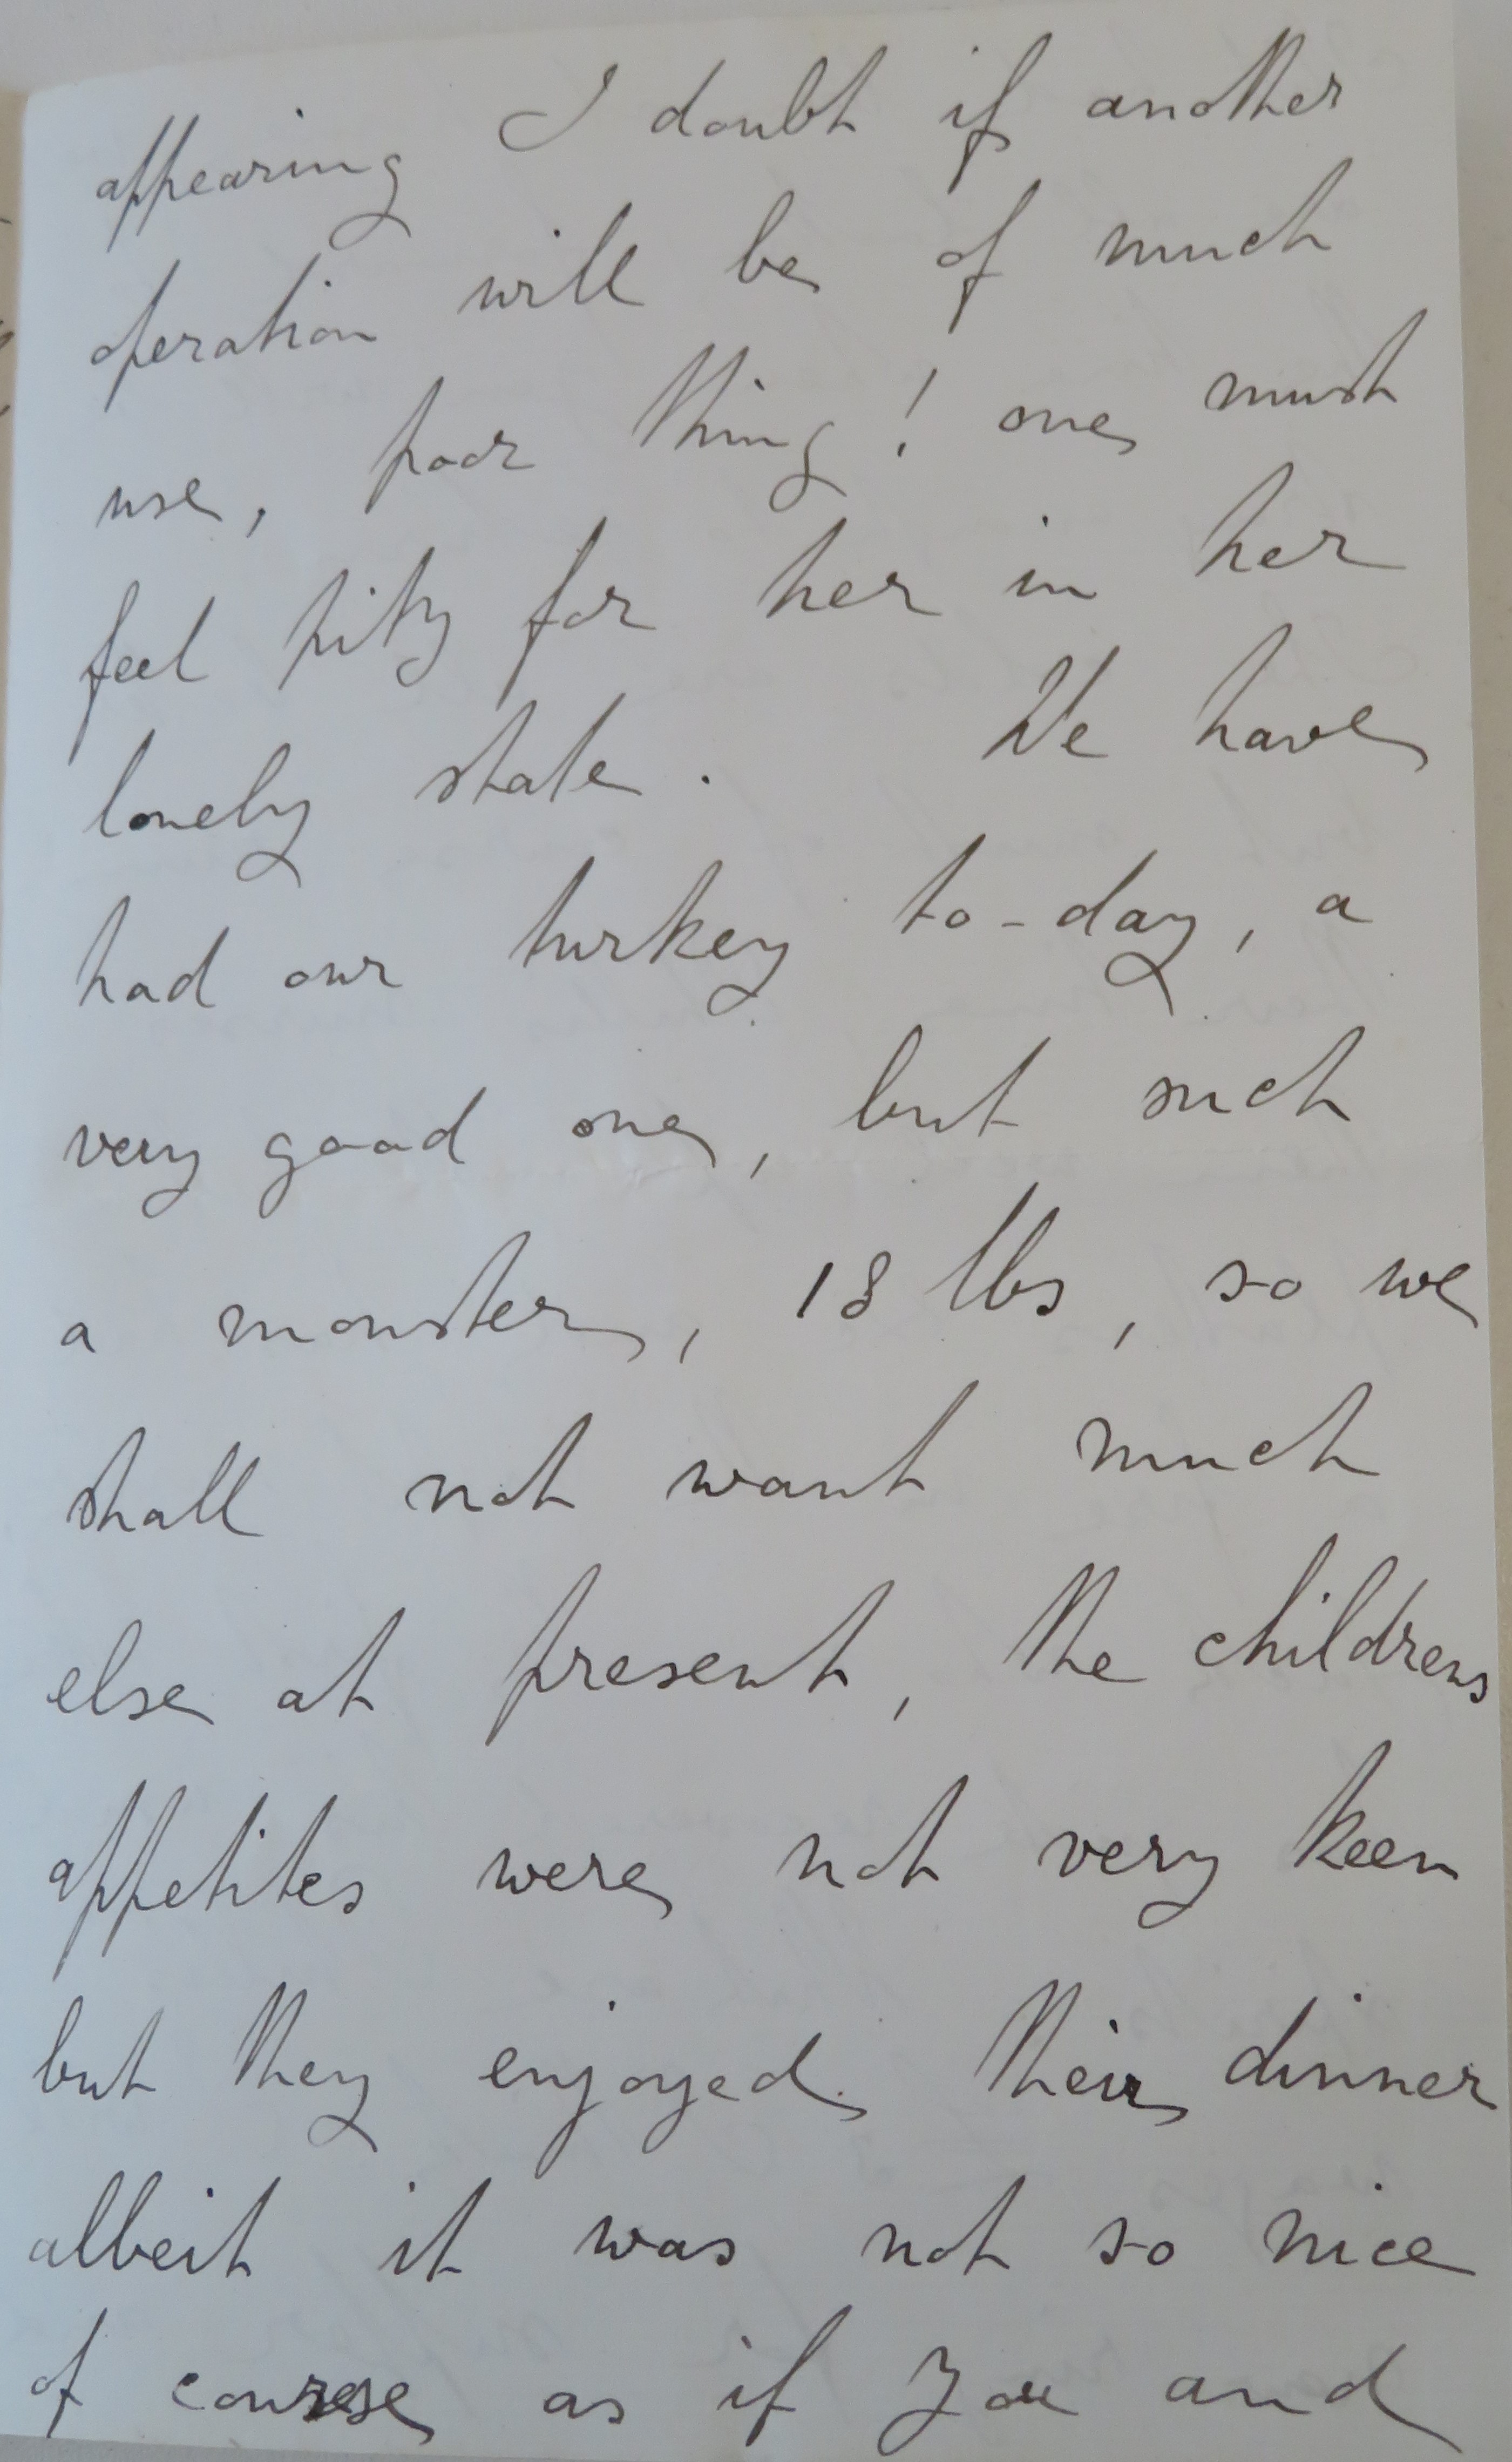 appearing I doubt if another
operation will be of much
use, poor thing! one must
feel pity for her in her
lonely state. We have
had our turkey to-day, a
very good one, but such
a monster, 18 lbs, so we
shall not want much
else at present, the childrens
appetites were not very keen
but they enjoyed their dinner
albeit it was not so nice
of course as if you and